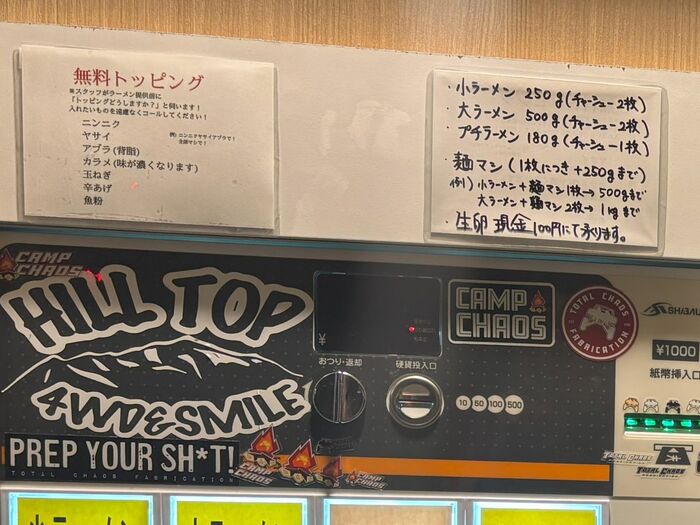 無料トッピング
※スタッフがラーメン提供前に
「トッピングどうしますか？」と伺います！
入れたいものを遠慮なくコールしてください！
ニンニク
ヤサイ
例）ニンニクヤサイアブラで！
全部マシで！
アブラ(背脂)
カラメ(味が濃くなります)
玉ねぎ
辛あげ
魚粉
・小ラーメン 250g(チャーシュー2枚)
・大ラーメン 500g(チャーシュー2枚)
・プチラーメン 180g(チャーシュー1枚)
・麺マシ(1枚につき+250gまで)
例) 小ラーメン+麺マシ1枚→500gまで
大ラーメン+麺マシ2枚→1kgまで
・生卵 現金100円にて承ります。
CAMP CHAOS
HILL TOP
4WD&SMILE
PREP YOUR SH*T!
TOTAL CHAOS FABRICATION
CAMP CHAOS
CAMP CHAOS
¥
おつり・返却
硬貨投入口
10 50 100 500
CAMP
CHAOS
TOTAL CHAOS
FABRICATION
¥1000
紙幣挿入口
TOTAL CHAOS
TOTAL CHAOS